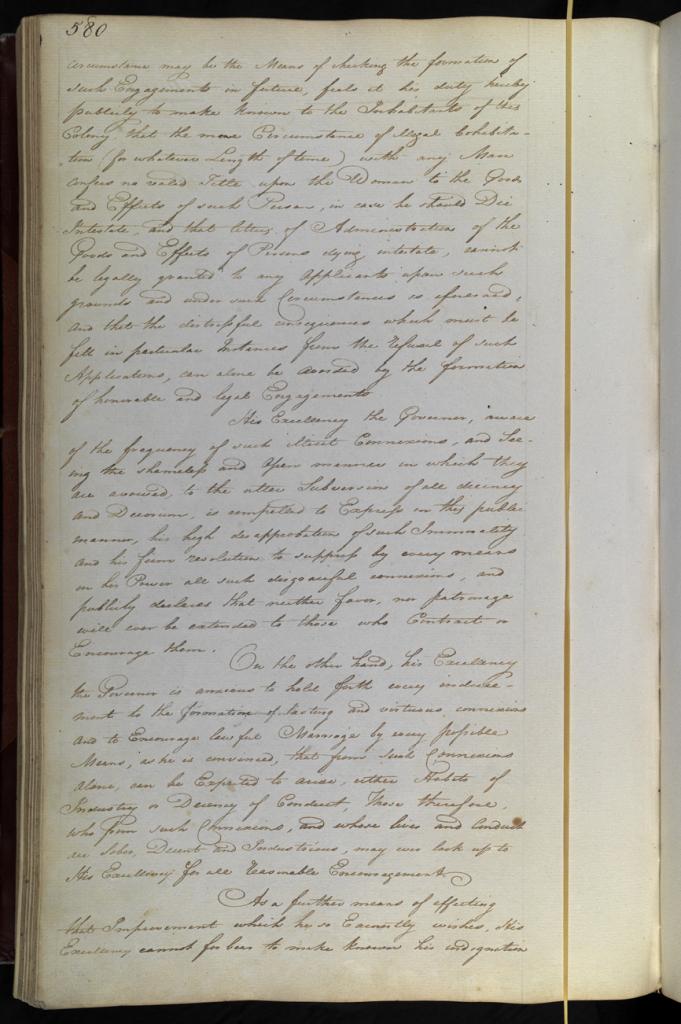 580
circumstance may be the Means of checking the formation of
Such Engagements in future, feels it his duty hereby
publicly to make known to the Inhabitants of this
Colony, that the mere Circumstance of illegal Cohibita-
tion (for whatever Length of time) with any Man
confers no valid Title upon the Woman to the Goods
and Effects of such Person, in case he should Die
Intestate, and that letters of Administration of the
Goods and Effects of Persons dying intestate, cannot
be legally granted to any Applicants upon such
grounds and under such Circumstances as aforesaid,
And that the distressful consequences which must be
felt in particular Instances from the Refusal of such
Applications, can alone be avoided by the formation
of honorable and legal Engagements
His Excellency the Governor, aware
of the frequency of such illicit Connexions, and See-
ing the shameless and Open manner in which they
are avowed, to the utter Subversion of all decency
and Decorum, is compelled to Express in this public
manner, his high disapprobation of such Immorality
and his firm resolution to suppress by every means
in his Power all such disgraceful connexions, and
publicly declares that neither favor, nor patronage
will ever be extended to those who Contract or
Encourage them.
On the other hand, his Excellency
the Governor is anxious to hold forth every induce-
ment to the formation of lasting and virtuous connexions
and to Encourage lawful Marriage by every possible
Means, as he is convinced, that from such Connexions
alone, can be Expected to arise, either Habits of
Industry or Decency of Conduct, Those therefore,
who form such Connexions, and whose lives and Conduct
are Sober, Decent and Industrious, may ever look up to
His Excellency for all Reasonable Encouragement.
As a further means of effecting
that Improvement which he so Earnestly wishes, His
Excellency cannot forbear to make known his indignation